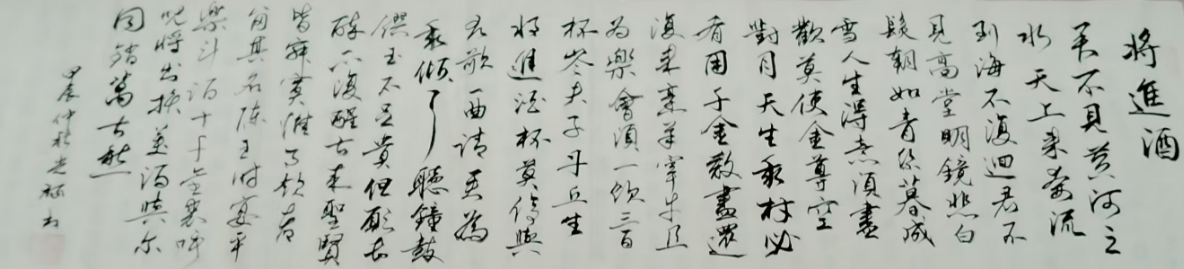 將進酒
君不見黄河之
水天上来奔流
到海不復迴君不
見高堂明鏡悲白
髮朝如青絲暮成
雪人生得意須盡
歡莫使金尊空
對月天生我材必
有用千金散盡還
復来烹羊宰牛且
為樂會須一飲三百
杯岑夫子丹丘生
将進酒杯莫停與
君歌一曲請君為
我傾耳聽鐘鼓
饌玉不足貴但願長
醉不復醒古来聖賢
皆寂寞惟有飲者
留其名陳王時宴平
樂斗酒十千金裘呼
兒將出換美酒與尔
同銷萬古愁
仲秋